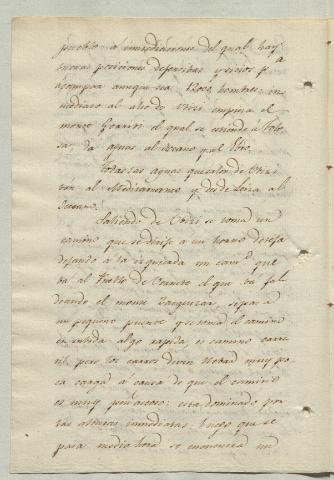 pueblo á inmediaciones del qual hay
buenas posiciones defensibas y sitios pa
acampar aunque sea 1200 hombres: in
mediato al alto de Urizi empina el
monte el qual se estiende á Tolo
sa, da aguas al oceano y al Ebro.
Todas las aguas que salen de Urizi
ban al Mediterraneo y desde Leiza al
Oceano.
Saliendo de Urizi se toma un
camino que se dirije a un horno de teja
dejando á la izquierda un camo que
ba al Pueblo de Oronoz el que va fal
deando el monte se pasa
un pequeño puente y se toma el camino
en subida algo rapida, es camino carre
til pero los carros deven llebar muy po
ca carga á causa de que el camino
es muy peñascoso: esta dominado por
las alturas inmediatas: luego que se
pasa media hora se encuentra un